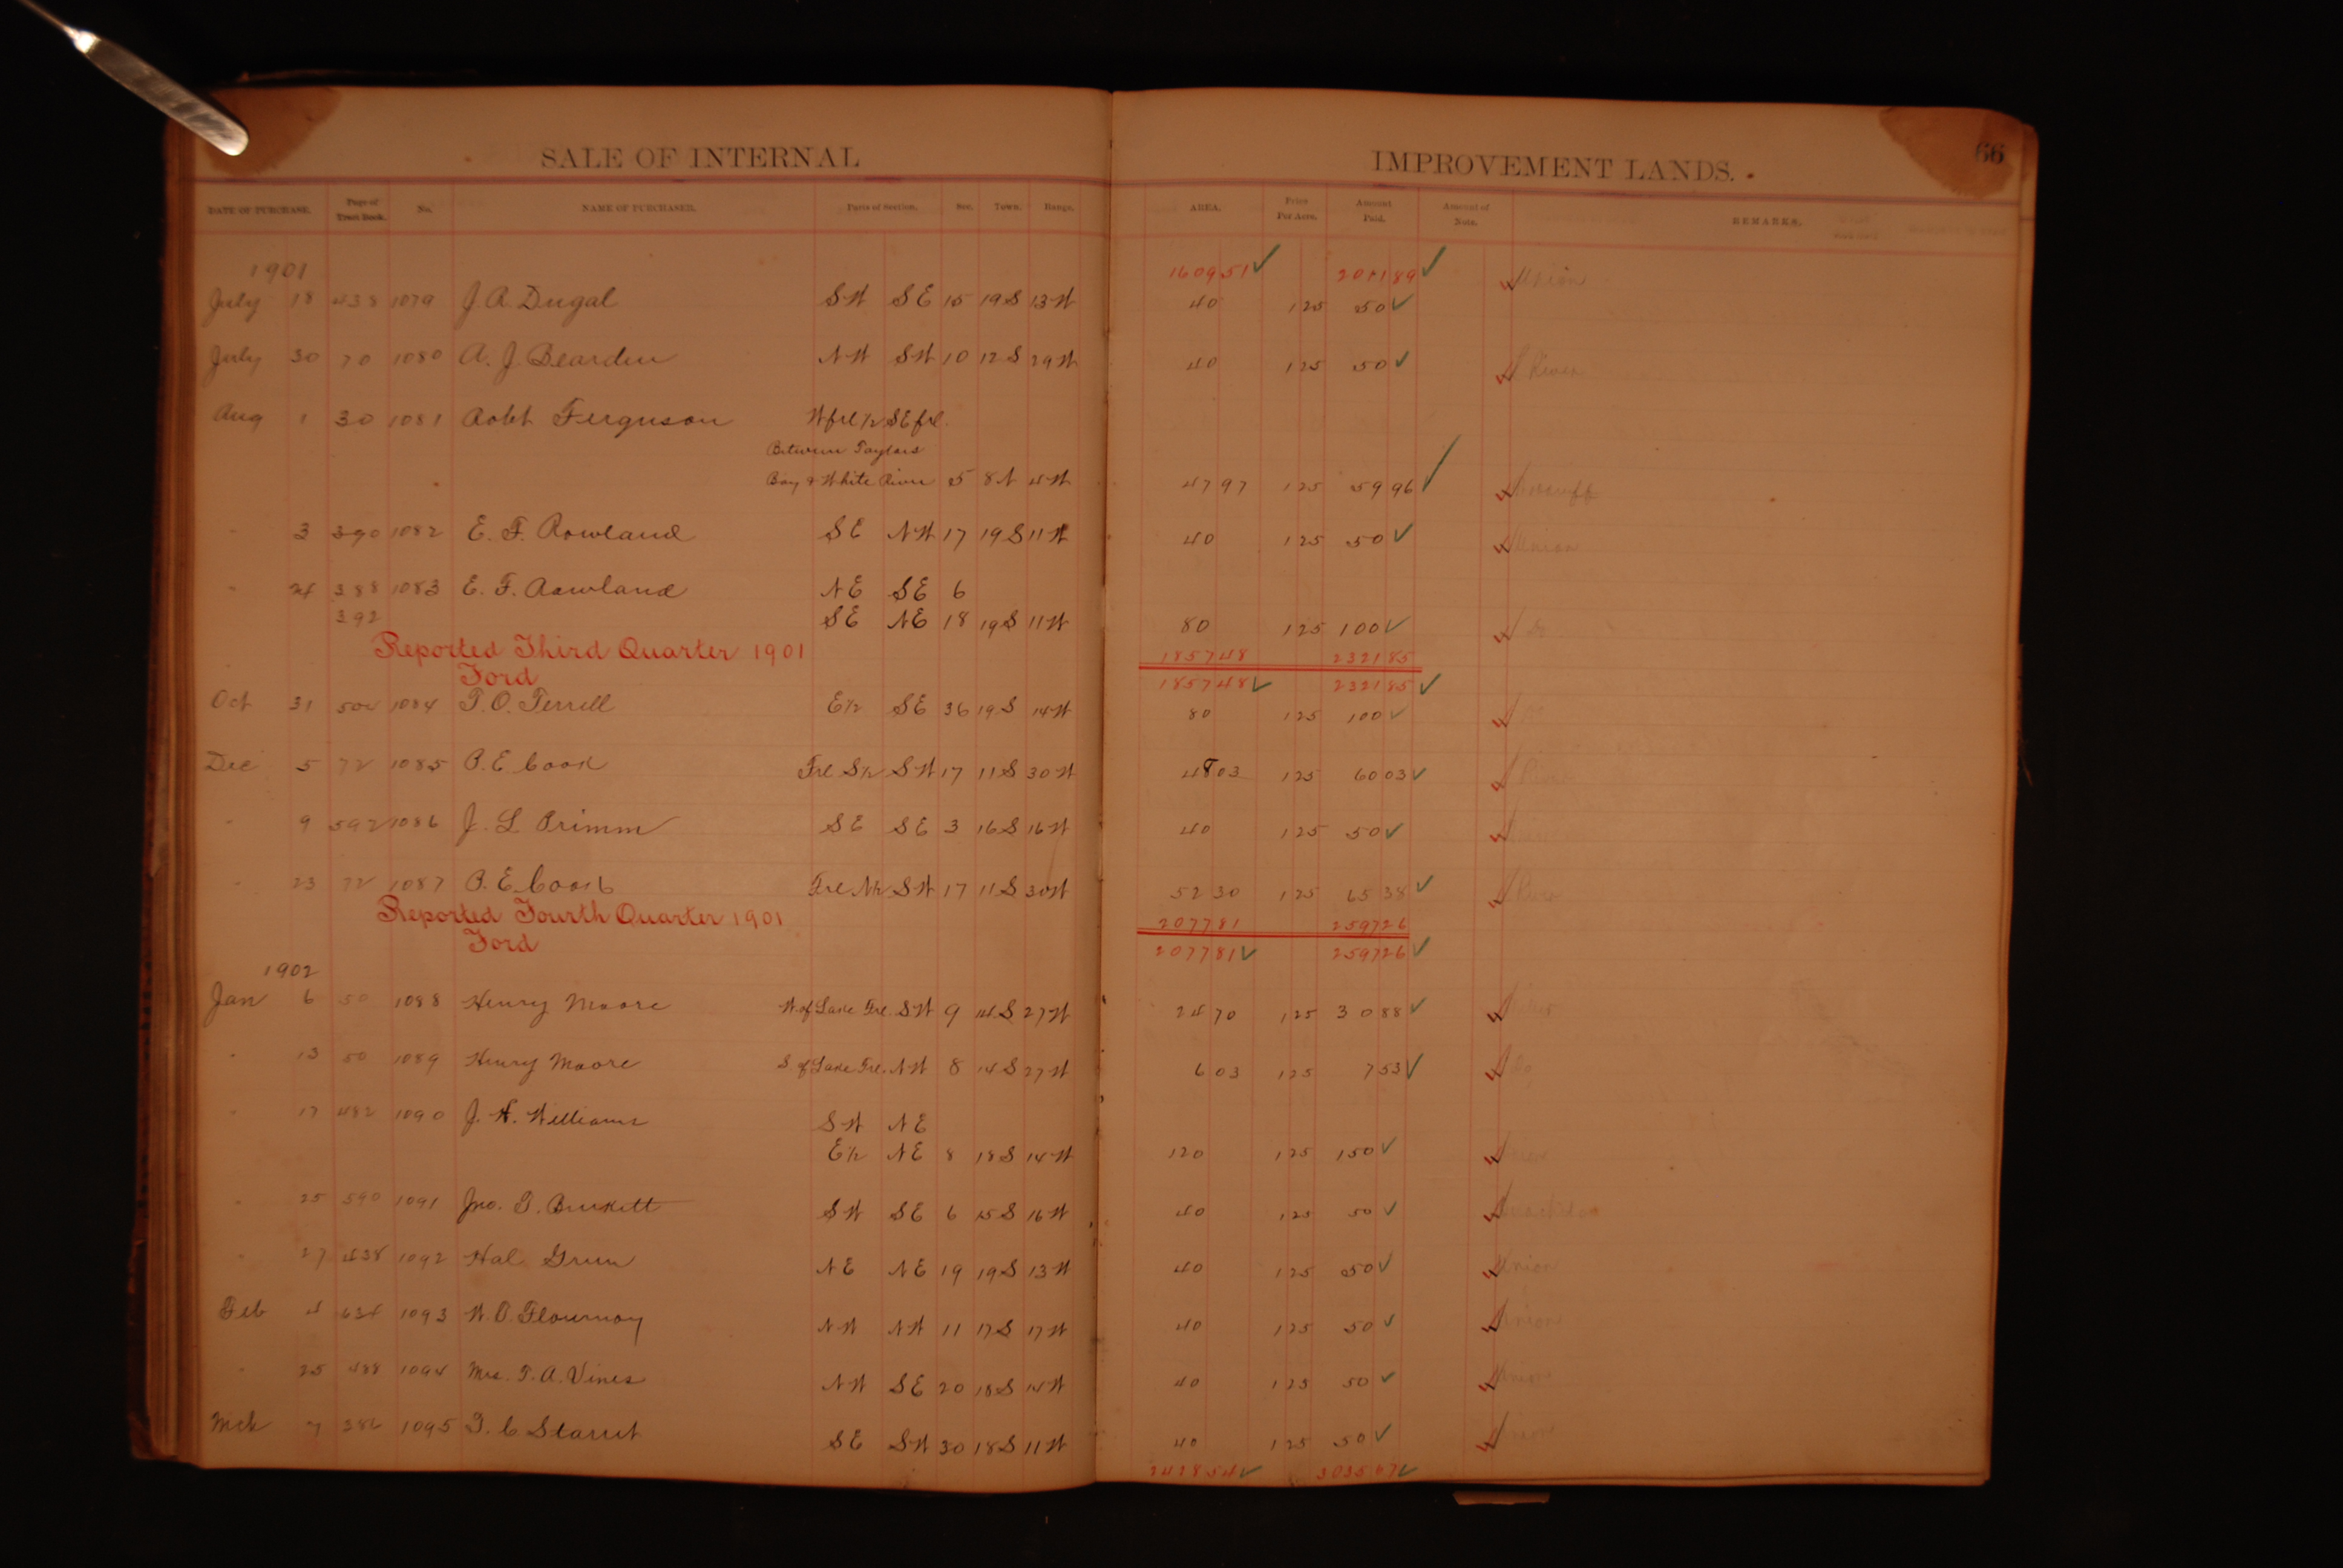 SALE OF INTERNAL IMPROVEMENT LANDS.
66
DATE OF PURCHASE. Page of Tract Book. No. NAME OF PURCHASER. Parts of Section. Sec. Town. Range. AREA. Price Per Acre. Amount Paid. Amount of Note. REMARKS.
1901 1609 51 ✓ 2011 89 ✓
July 18 438 1079 J. A. Dugal SW SE 15 19S 13W 40 1 25 50 ✓ Union
July 30 70 1080 A. J. Bearden NW SW 10 12S 29W 40 1 25 50 ✓ L River
Aug 1 30 1081 Robt Ferguson W frl 1/2 SE frl.
Between Taylors
Bay & White River 5 8N 4W 47 97 1 25 59 96 ✓ Woodruff
" 3 390 1082 E. F. Rowland SE NW 17 19S 11W 40 1 25 50 ✓ Union
" 24 388 1083 E. F. Rowland NE SE 6
392 SE NE 18 19S 11W 80 1 25 100 ✓ Do
Reported Third Quarter 1901 1857 48 2321 85
Ford 1857 48 ✓ 2321 85 ✓
Oct 31 504 1084 T. O. Terrell E1/2 SE 36 19S 14W 80 1 25 100 ✓
Dec 5 72 1085 P. E. Cook Frl S1/2 SW 17 11S 30W 48 03 1 25 60 03 ✓
" 9 592 1086 J. L. Primm SE SE 3 16S 16W 40 1 25 50 ✓
" 23 72 1087 P. E. Cook Frl N1/2 SW 17 11S 30W 52 30 1 25 65 38 ✓
Reported Fourth Quarter 1901 2077 81 2597 26
Ford 2077 81 ✓ 2597 26 ✓
1902
Jan 6 50 1088 Henry Moore W. of Lake Frl. SW 9 14S 27W 24 70 1 25 30 88 ✓
" 13 50 1089 Henry Moore S of Lake Frl. NW 8 14S 27W 6 03 1 25 7 53 ✓ Do
" 17 482 1090 J. W. Williams SW NE
E1/2 NE 8 18S 14W 120 1 25 150 ✓
" 25 590 1091 Jno. T. Burkett SW SE 6 15S 16W 40 1 25 50 ✓ Ouachita
" 27 438 1092 Hal Green NE NE 19 19S 13W 40 1 25 50 ✓ Union
Feb 4 634 1093 W. O. Flournoy NW NW 11 17S 17W 40 1 25 50 ✓ Union
" 25 488 1094 Mrs. T. A. Vines NW SE 20 18S 14W 40 1 25 50 ✓ Union
Mch 7 386 1095 T. C. SE SW 30 18S 11W 40 1 25 50 ✓ Union
2428 54 ✓ 3035 67 ✓